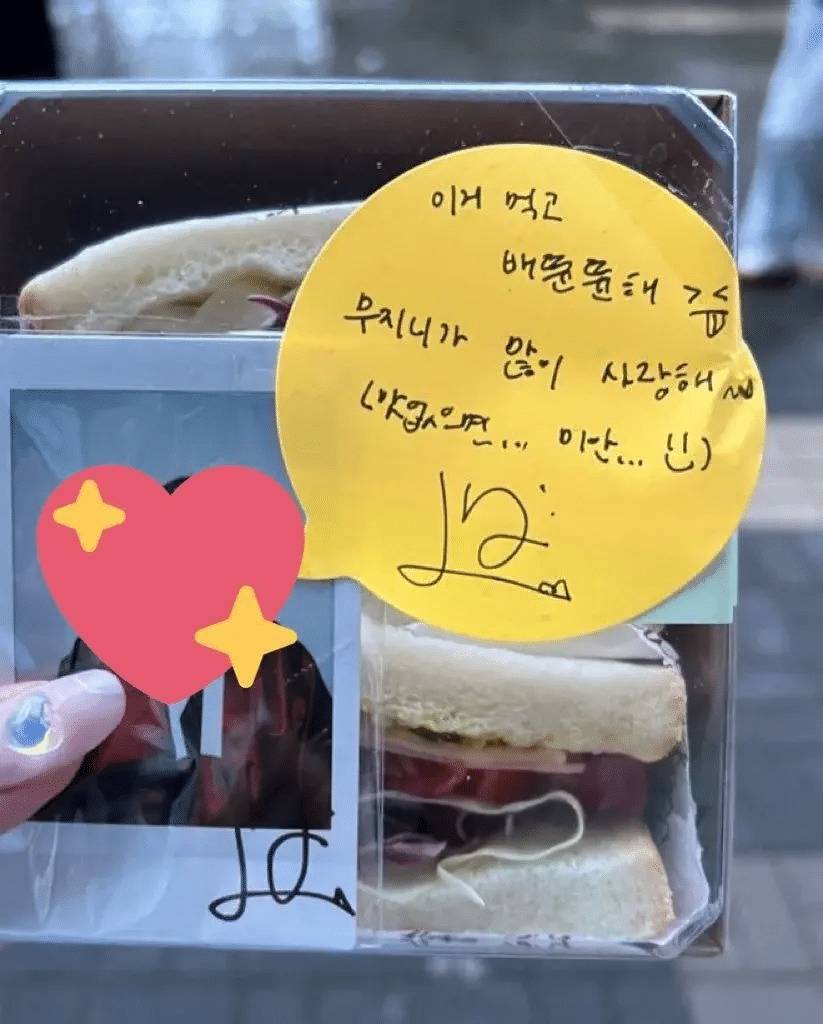 이거 먹고
배뚠뚠해 ><
우지니가 많이 사랑해
(맛없으면... 미안... ㅠㅠ)